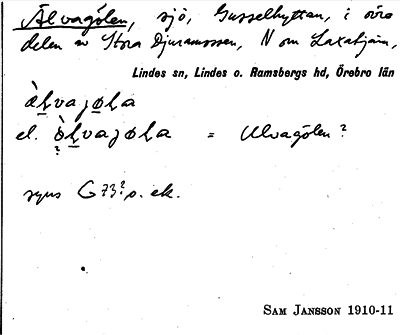 Älvagölen, sjö, Gusselhyttan, i övre
delen av Stora Djuramossen, N om Laxatjärn,
Lindes sn, Lindes o. Ramsbergs hd, Örebro län
el. = Ulvagölen?
syns G 73? o. ek.
SAM JANSSON 1910-11